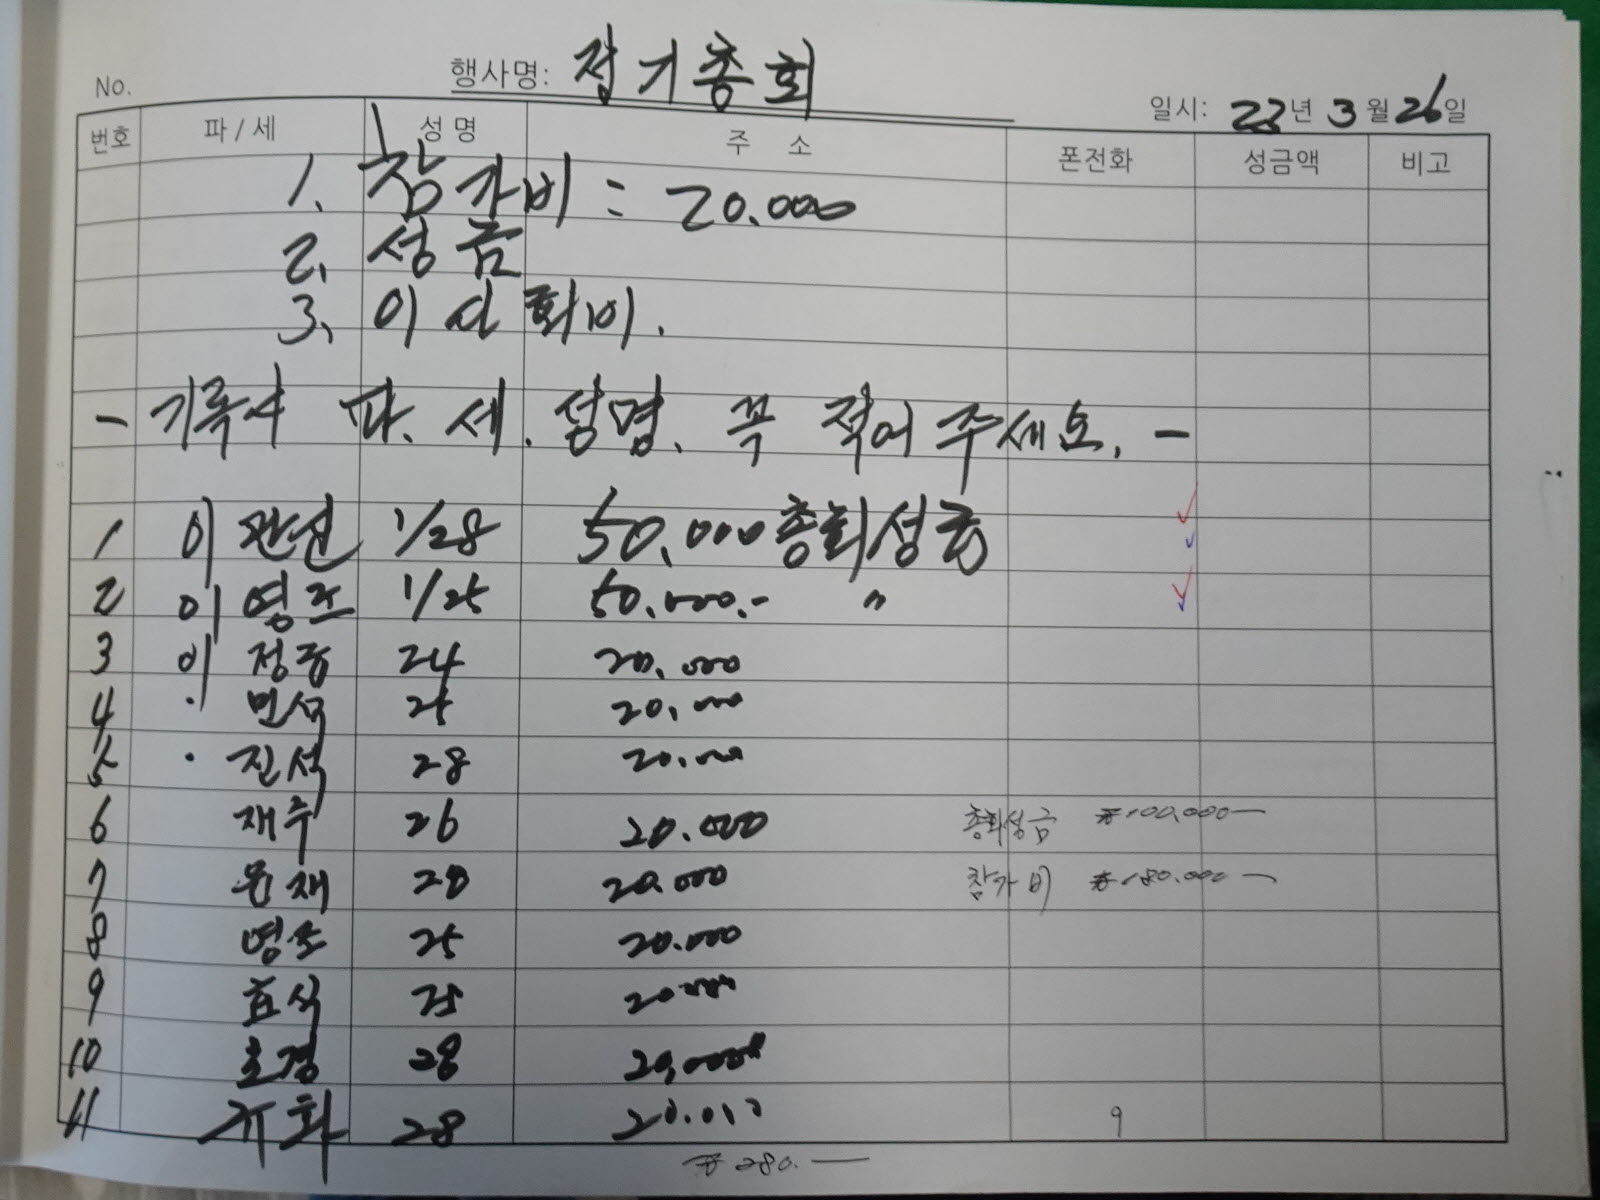 No.
행사명: 정기총회
일시: 22년 3월 26일
번호 파/세 성명 주 소 폰전화 성금액 비고
1. 참가비 : 20.000
2. 성금
3. 이사회비.
- 기록시 파. 세. 성명. 꼭 적어 주세요. -
1 이 관선 1/28 50.000 총회성금
2 이 영조 1/25 50.000.- 〃
3 이 정중 24 20.000
4 〃 민석 25 20.000
5 〃 진석 28 20.000
6 재수 26 20.000 총회성금 ₩100,000 —
7 윤재 28 20.000 참가비 ₩180.000 —
8 영조 25 20.000
9 효식 25 20.000
10 호경 28 20,000
11 규화 28 20.000 9
₩280. —